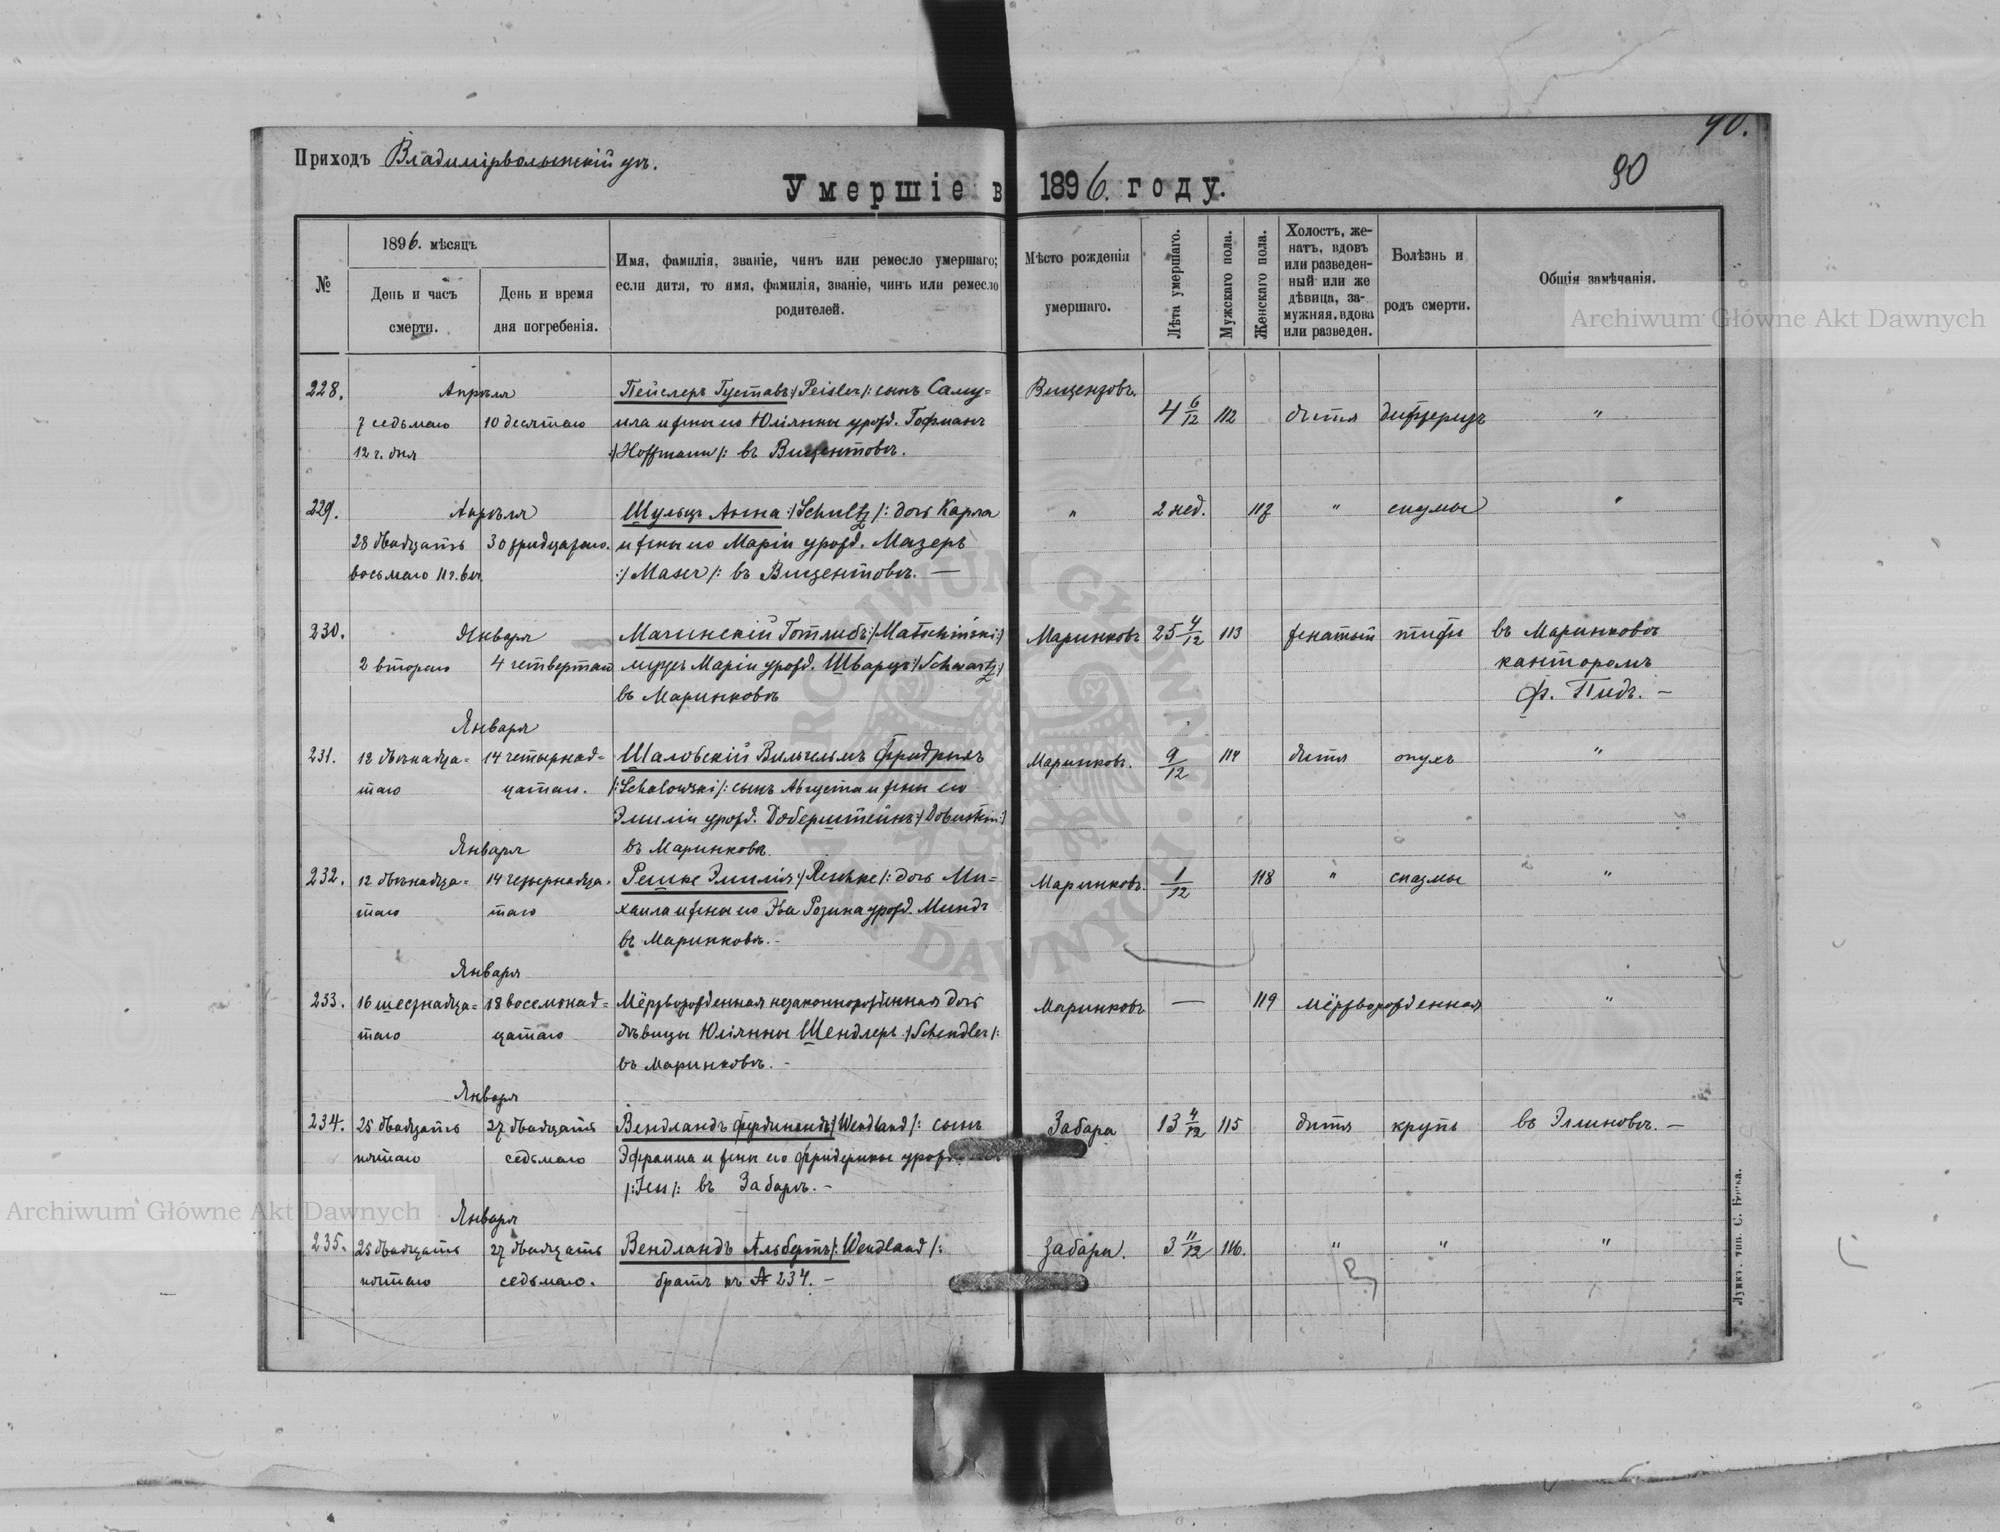 90.
Приходъ Владимірволынскій уѣ.
90
Умершіе въ 1896. году.
№
1896. мѣсяцъ
День и часъ смерти.
День и время дня погребенія.
Имя, фамилія, званіе, чинъ или ремесло умершаго;
если дитя, то имя, фамилія, званіе, чинъ или ремесло
родителей.
Мѣсто рожденія
умершаго.
Лѣта умершаго.
Мужскаго пола.
Женскаго пола.
Холостъ, же-
натъ, вдовъ
или разведен-
ный или же
дѣвица, за-
мужняя, вдова
или разведен.
Болѣзнь и
родъ смерти.
Общія замѣчанія.
Archiwum Główne Akt Dawnych
228. Апрѣля Пейслеръ Густавъ :/Peisler/: сынъ Саму=
7 седьмаго 10 десятаго ила и жены его Юліянны урожд. Гофманъ 4 6/12 112 дитя дифтеритъ "
12 ч. дня :/Hoffmann/: въ Вицентовѣ.
229. Апрѣля Шульцъ Анна :/Schultz/: дочь Карла " 2 нед. 117 " спазмы "
28 двадцать 30 тридцатаго. и жены его Маріи урожд. Мазеръ
восьмаго 11 ч. веч. :/Maser/: въ Вицентовѣ. —
230. Января Мачинскій Готлибъ :/Matschinski:/ Маринковъ 25 4/12 113 женатый тифъ въ Маринковѣ
2 втораго 4 четвертаго мужъ Маріи урожд. Шварцъ :/Schwartz:/ канторомъ
въ Маринковѣ Ф. Пидъ. —
Января
231. 12 двѣнадца= 14 четырнад= Шаловскій Вильгельмъ Фридрихъ Маринковъ. 9/12 114 дитя опухъ "
таго цатаго. /:Schalowski/: сынъ Августа и жены его
Эмиліи урожд. Доберштейнъ
Января въ Маринковѣ.
232. 12 двѣнадца= 14 четырнадца= Решке Эмилія :/Reschke/: дочь Ми= Маринковъ. 1/12 118 " спазмы "
таго таго хаила и жены его Эва Розина урожд. Миндъ
въ Маринковѣ. -
Января
233. 16 шестнадца= 18 восемнад= Мёртворожденная незаконнорожденная дочь Маринковъ — 119 мёртворожденная "
таго цатаго дѣвицы Юліянны Шендлеръ :/Schendler/:
въ Маринковѣ. -
Января
234. 25 двадцать 27 двадцать Вендландъ Фердинандъ /Wendland/: сынъ Забара 13 4/12 115 дитя крупъ въ Эллиновѣ. —
пятаго седьмаго Эфраима и жены его Фридерики урожд.
въ Забарѣ. -
Archiwum Główne Akt Dawnych
Января
235. 25 двадцать 27 двадцать Вендландъ Альбертъ /:Wendland/: Забара. 3 11/12 116. " " "
пятаго седьмаго. братъ къ № 234. -
Луцкъ. тип. С. Бейка.
ARCHIWUM GŁÓWNE AKT DAWNYCH